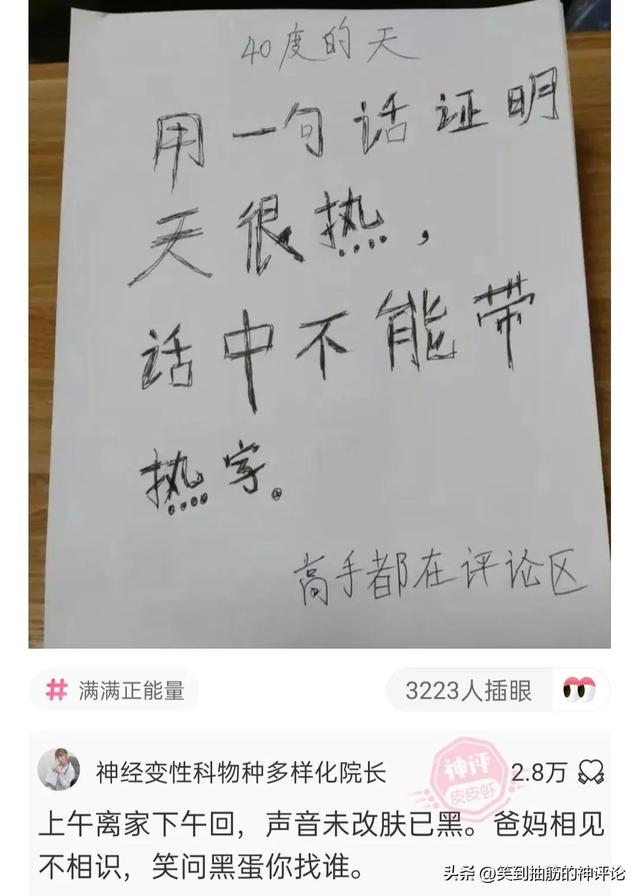 40度的天
用一句话证明
天很热，
话中不能带
热字。
高手都在评论区
# 满满正能量
3223人插眼
神经变性科物种多样化院长
神评
皮皮虾
2.8万
上午离家下午回，声音未改肤已黑。爸妈相见
不相识，笑问黑蛋你找谁。
头条 @笑到抽筋的神评论